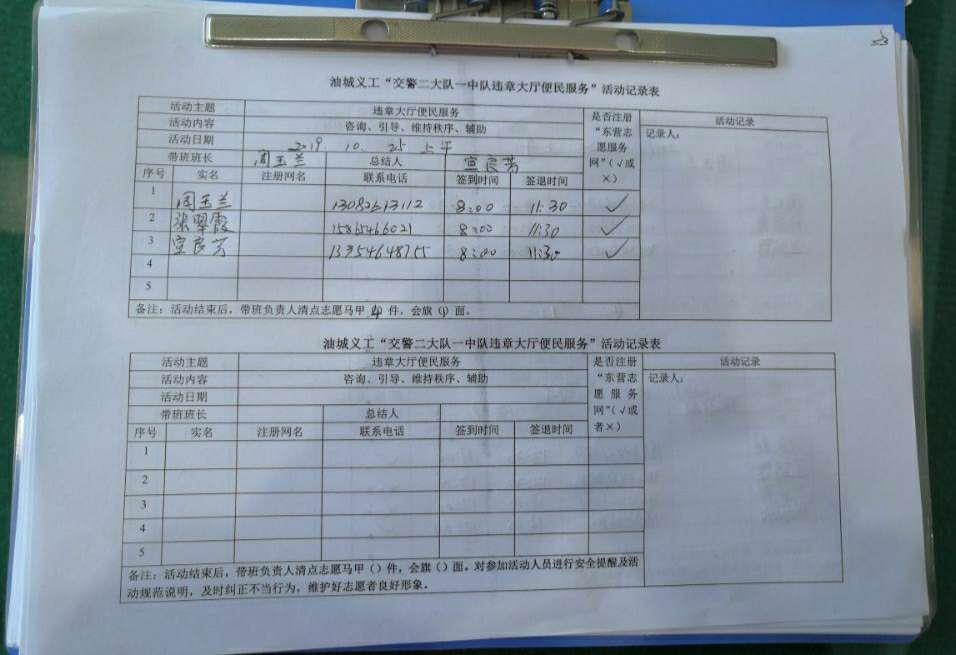 油城义工“交警二大队一中队违章大厅便民服务”活动记录表
活动主题 违章大厅便民服务 是否注册“东营志愿服务网”（√或×） 活动记录
活动内容 咨询、引导、维持秩序、辅助 记录人：
活动日期 2019 10. 25 上午
带班班长 周玉兰 总结人 宣良芳
序号 实名 注册网名 联系电话 签到时间 签退时间
1 周玉兰 8:00 11:30 √
2 张翠霞 15865466021 8:00 11:30 √
3 宣良芳 13954648755 8:00 11:30 √
4
5
备注：活动结束后，带班负责人清点志愿马甲 件，会旗（1）面。
油城义工“交警二大队一中队违章大厅便民服务”活动记录表
活动主题 违章大厅便民服务 是否注册“东营志愿服务网”（√或者×） 活动记录
活动内容 咨询、引导、维持秩序、辅助 记录人：
活动日期
带班班长 总结人
序号 实名 注册网名 联系电话 签到时间 签退时间
1
2
3
4
5
备注：活动结束后，带班负责人清点志愿马甲（）件，会旗（）面。对参加活动人员进行安全提醒及活
动规范说明，及时纠正不当行为，维护好志愿者良好形象。